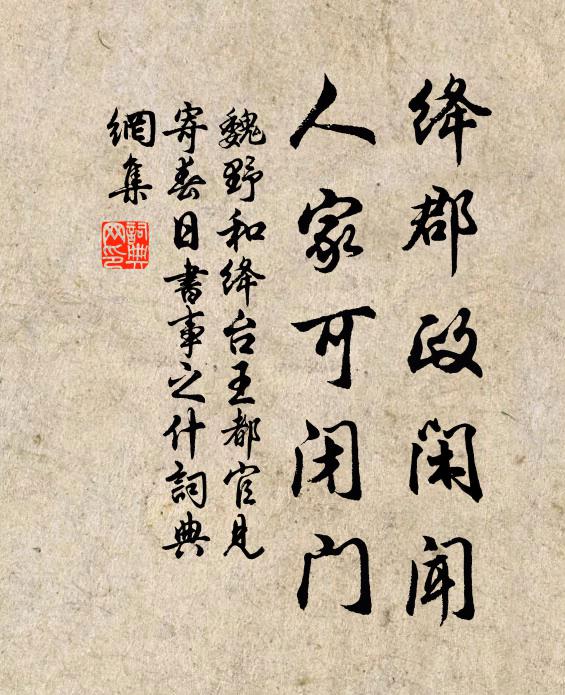 绛郡政闲闻
人家可闭门
魏野和绛台王都官见
寄春日书事之什詞典
網集
詞典
网印